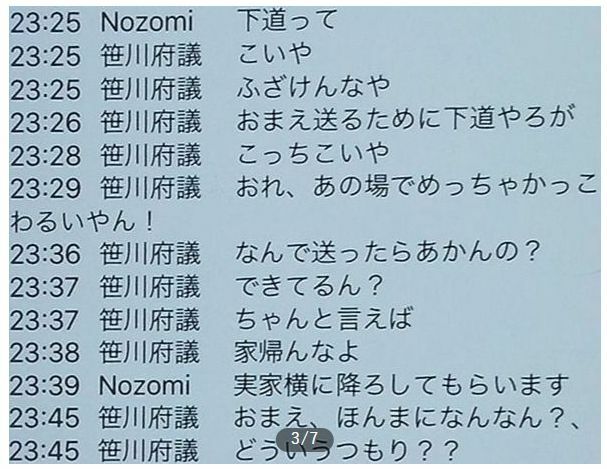 23:25 Nozomi 下道って
23:25 笹川府議 こいや
23:25 笹川府議 ふざけんなや
23:26 笹川府議 おまえ送るために下道やろが
23:28 笹川府議 こっちこいや
23:29 笹川府議 おれ、あの場でめっちゃかっこ
わるいやん！
23:36 笹川府議 なんで送ったらあかんの？
23:37 笹川府議 できてるん？
23:37 笹川府議 ちゃんと言えば
23:38 笹川府議 家帰んなよ
23:39 Nozomi 実家横に降ろしてもらいます
23:45 笹川府議 おまえ、ほんまになんなん？、
23:45 笹川府議 どういうつもり？？
3/7